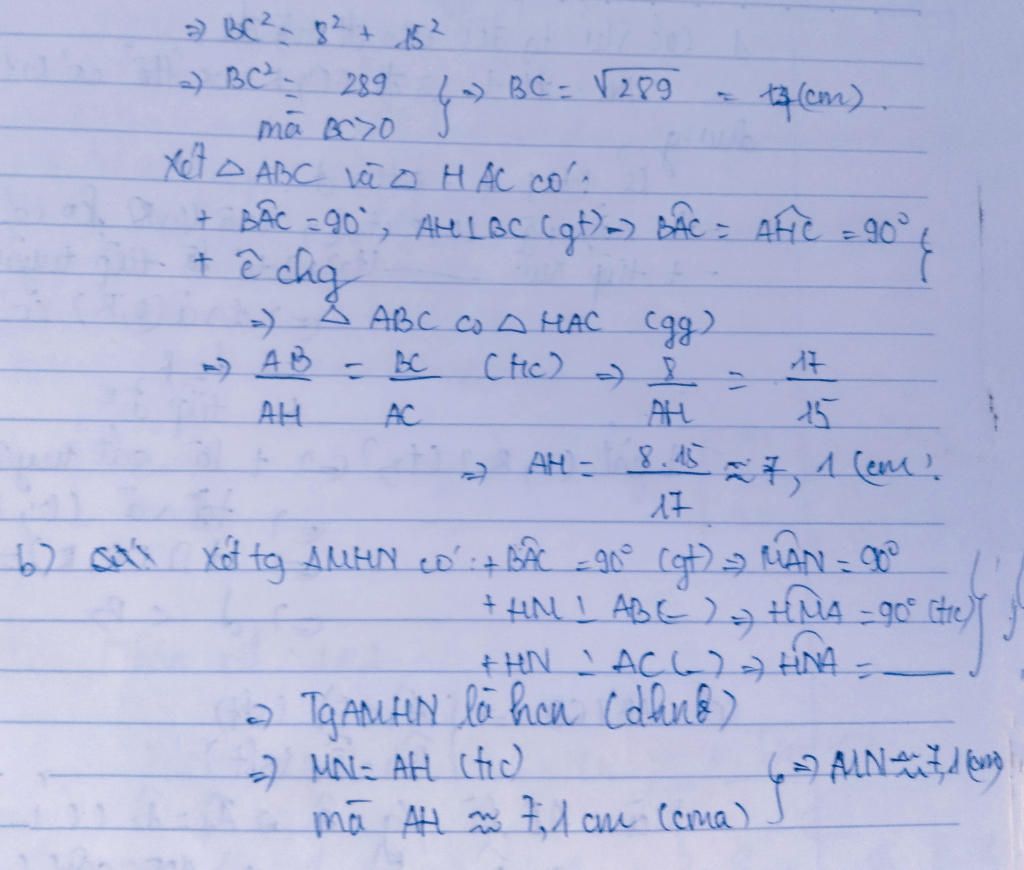 ⇒ BC² = 8² + 15²
⇒ BC² = 289 } ⇒ BC = √289 = 17 (cm).
mà BC>0
Xét △ ABC và △ HAC có:
+ BÂC = 90°, AH ⊥ BC (gt) ⇒ BÂC = AĤC = 90° }
+ Ĉ chg
⇒ △ ABC ∽ △ HAC (gg)
⇒ AB/AH = BC/AC (tc) ⇒ 8/AH = 17/15
⇒ AH = 8.15/17 ≈ 7,1 (cm).
b) Xét tg AMHN có: + BÂC = 90° (gt) ⇒ MÂN = 90°
+ HM ⊥ AB (–) ⇒ HM̂A = 90° (tc)
+ HN ⊥ AC (–) ⇒ HN̂A = ___ }
⇒ Tg AMHN là hcn (dhnb)
⇒ MN = AH (tc) } ⇒ MN ≈ 7,1 (cm)
mà AH ≈ 7,1 cm (cma)